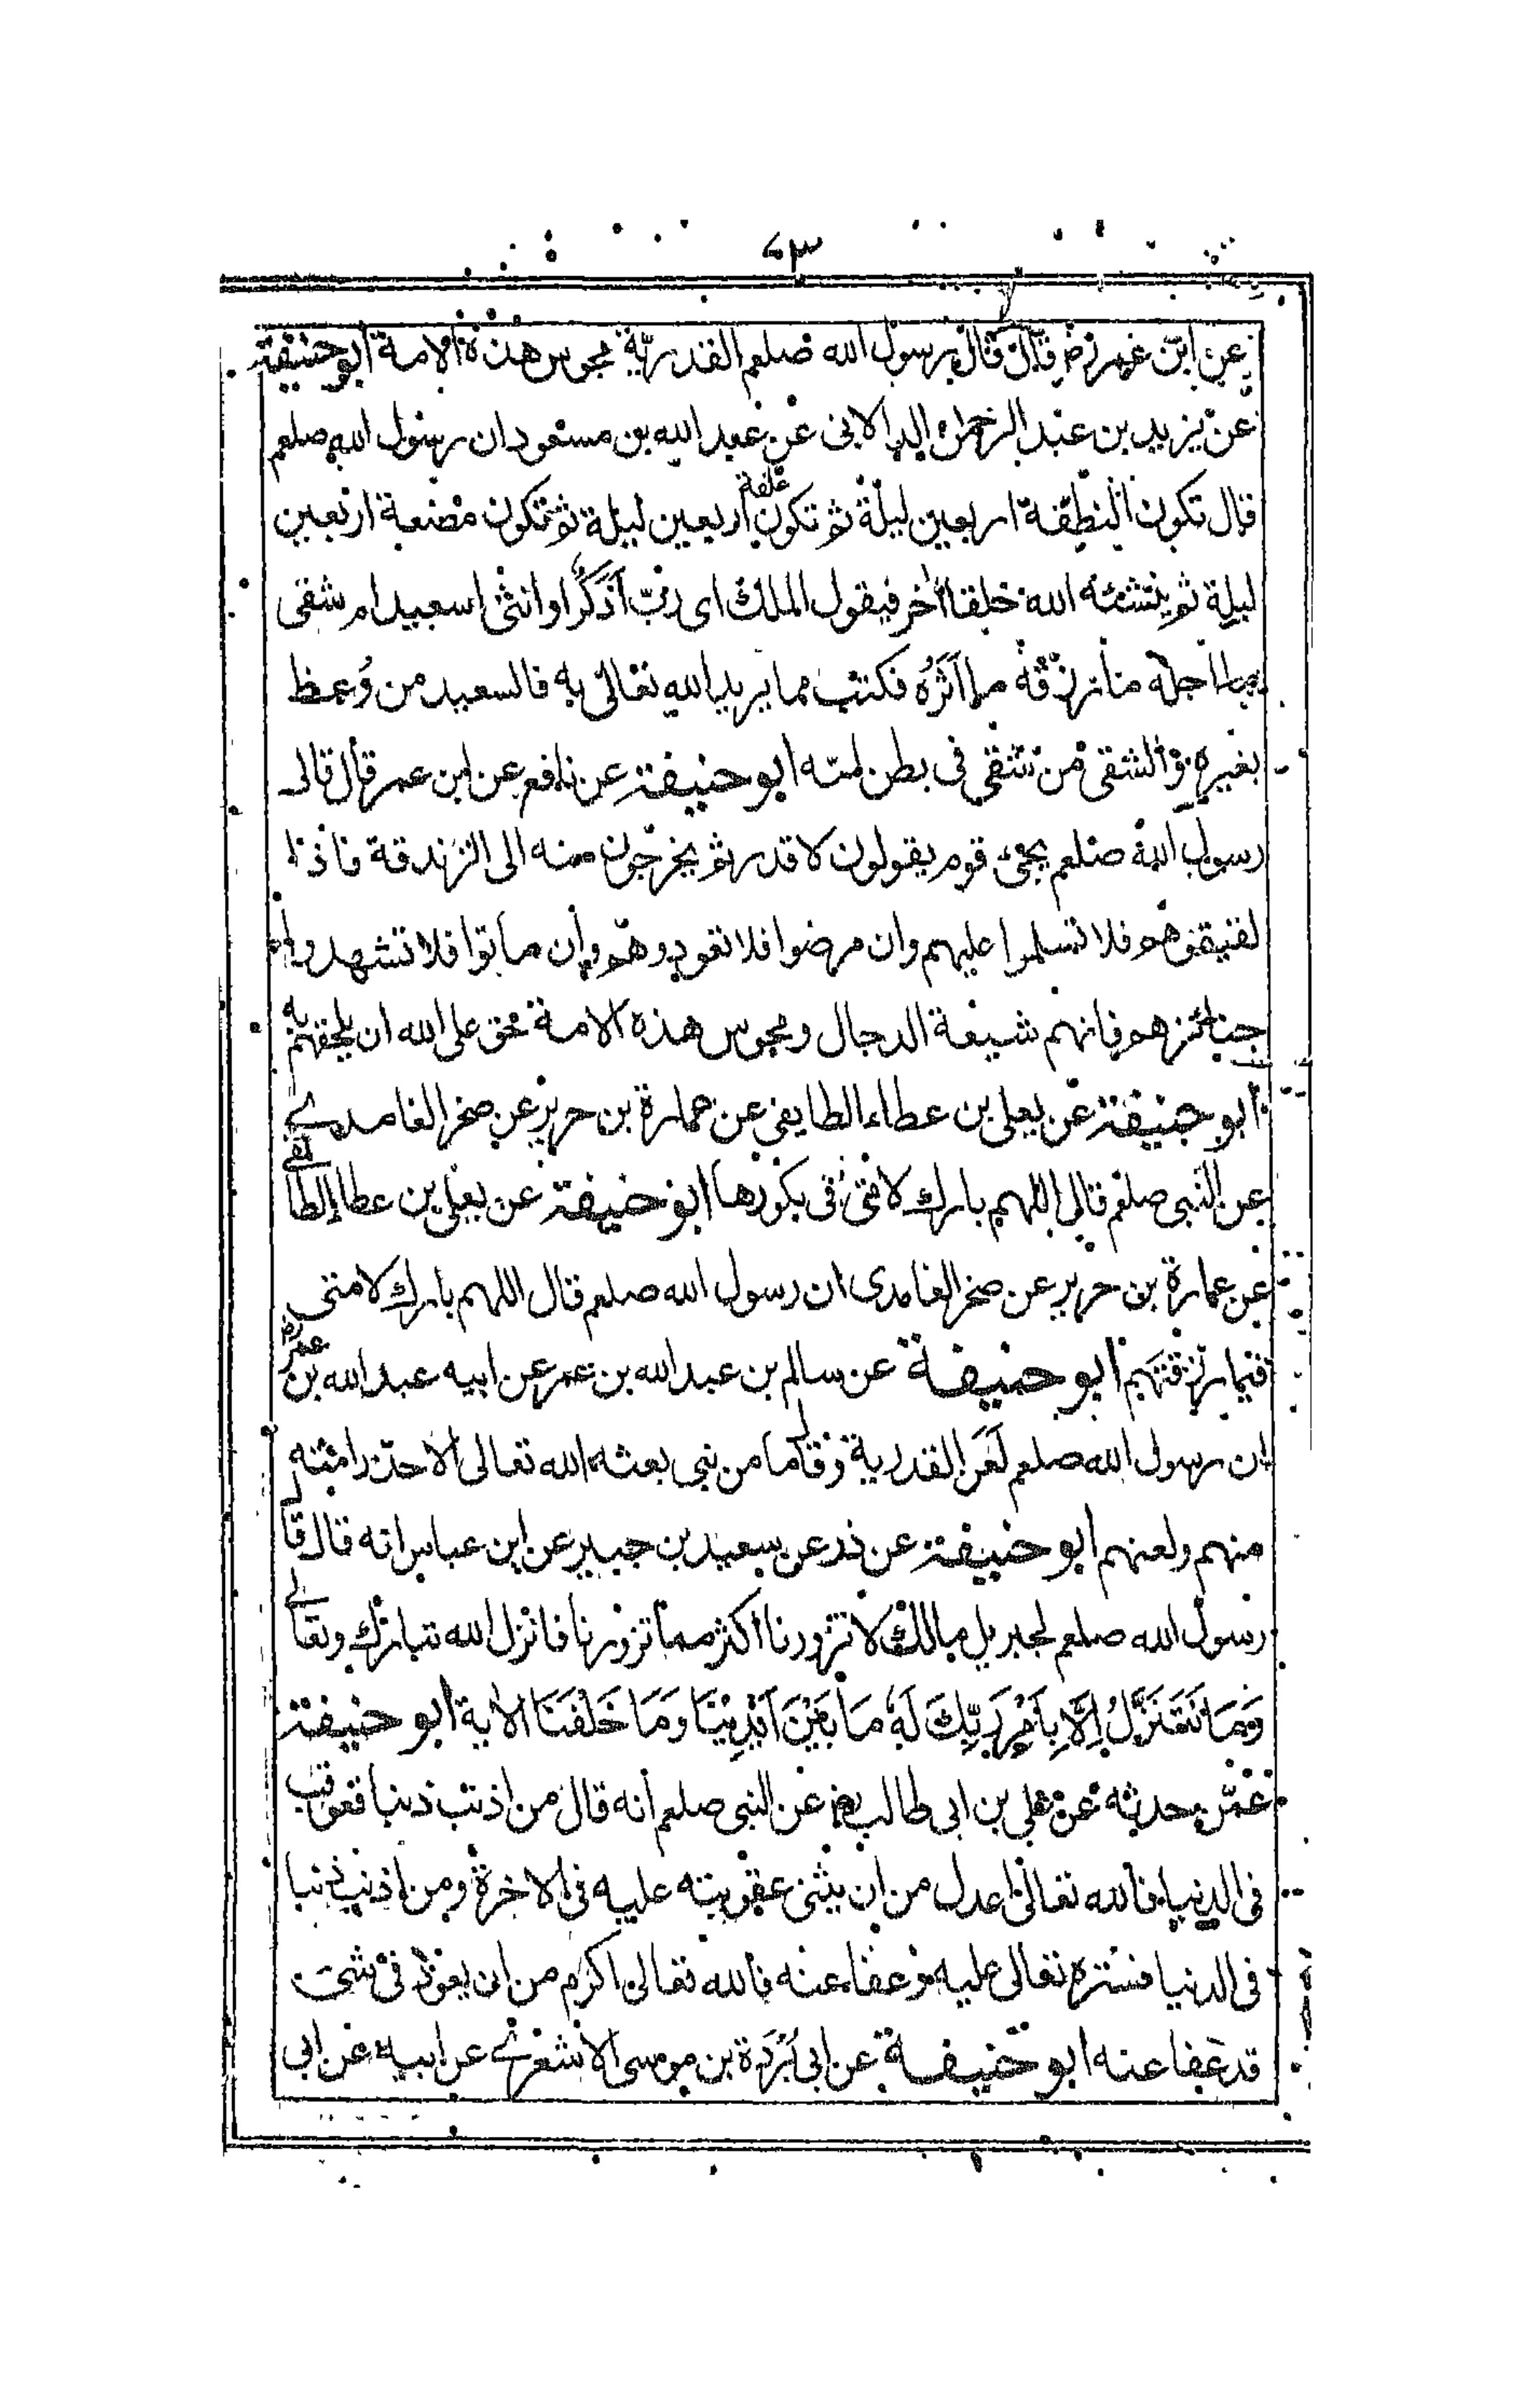 ٧٣
عن ابن عمر رض قال قال رسول الله صلعم القدرية مجوس هذه الامة ابو حنيفة
عن يزيد بن عبد الرحمن عن عبد الله بن مسعود ان رسول الله صلعم
قال تكون النطفة اربعين ليلة ثم تكون علقة اربعين ليلة ثم تكون مضغة اربعين
ليلة ثم ينشئه الله خلقا اخر فيقول الملك اى ربّ اَذَكَرٌ او انثى اسعيد ام شقى
ما اجله ما رزقه ما اَثَرُه فكتب مما يريد الله تعالى به فالسعيد من وُعظ
بغيره والشقى من شقى فى بطن امه ابو حنيفة عن نافع عن ابن عمر قال قال
رسول الله صلعم يجئ قوم يقولون لا قدر ثم يخرجون منه الى الزندقة فاذا
لقيتموهم فلا تسلموا عليهم وان مرضوا فلا تعودوهم وان ماتوا فلا تشهدوا
جنائزهم فانهم شيعة الدجال ومجوس هذه الامة حق على الله ان يلحقهم به
ابو حنيفة عن يعلى بن عطاء الطايفى عن عمارة بن حرير عن صخر الغامدے
عن النبى صلعم قال اللهم بارك لامتى فى بكورها ابو حنيفة عن يعلى بن عطا الطائفى
عن عمارة بن حرير عن صخر الغامدى ان رسول الله صلعم قال اللهم بارك لامتى
فيما رزقتهم ابو حنيفة عن سالم بن عبد الله بن عمر عن ابيه عبد الله بن عمر رض
ان رسول الله صلعم لَعَن القدرية وقال ما من نبى بعثه الله تعالى الا حذر امته
منهم ولعنهم ابو حنيفة عن ذر عن سعيد بن جبير عن ابن عباس انه قال قال
رسول الله صلعم لجبريل مالك لا تزورنا اكثر مما تزورنا فانزل الله تبارك وتعالے
وَمَا نَتَنَزَّلُ اِلَّا بِاَمْرِ رَبِّكَ لَهٗ مَا بَيْنَ اَيْدِيْنَا وَمَا خَلْفَنَا الاية ابو حنيفة
عمّن حدثه عن على بن ابى طالب رض عن النبى صلعم انه قال من اذنب ذنبا فعوقب
فى الدنيا فالله تعالى اعدل من ان يثنى عقوبته عليه فى الاخرة ومن اذنب ذنبا
فى الدنيا فستره تعالى عليه وعفا عنه فالله تعالى اكرم من ان يعود فى شئ
قد عفا عنه ابو حنيفة عن ابى بُرْدَة بن موسى الاشعرے عن ابيه عن ابى